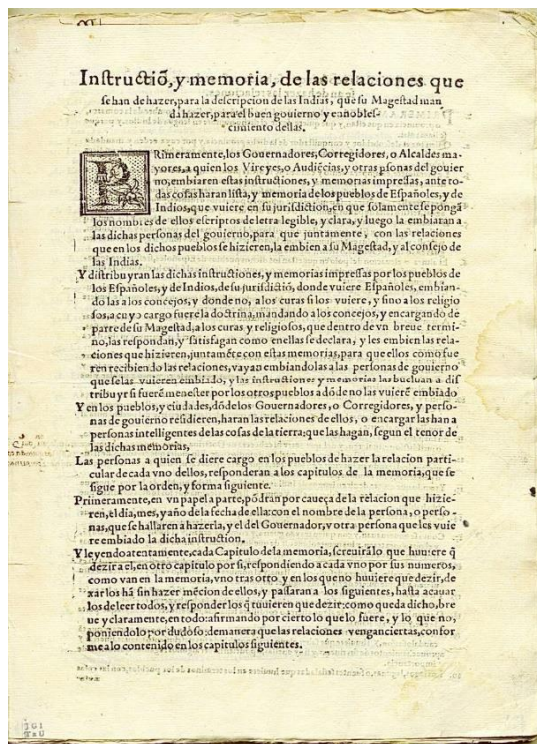 Instructiõ, y memoria, de las relaciones que
se han de hazer, para la descripcion de las Indias, que su Magestad man
da hazer, para el buen gouierno y ennobles-
cimiento dellas.
PRimeramente, los Gouernadores, Corregidores, o Alcaldes ma-
yores, a quien los Vireyes, o Audiẽcias, y otras psonas del gouier
no, embiaren estas instructiones, y memorias impressas, ante to-
das cosas haran lista, y memoria de los pueblos de Españoles, y de
Indios, que vuiere en su jurisdiction, en que solamente se pongã
los nombres de ellos escriptos de letra legible, y clara, y luego la embiaran a
las dichas personas del gouierno, para que juntamente, con las relaciones
que en los dichos pueblos se hizieren, la embien a su Magestad, y al consejo de
las Indias.
Y distribuyran las dichas instructiones, y memorias impressas por los pueblos de
los Españoles, y de Indios, de su jurisdictiõ, donde vuiere Españoles, embian-
do las a los concejos, y donde no, a los curas si los vuiere, y sino a los religio
sos, a cuyo cargo fuere la doctrina, mandando a los concejos, y encargando de
parte de su Magestad, a los curas y religiosos, que dentro de vn breue termi-
no, las respondan, y satisfagan como en ellas se declara, y les embien las rela-
ciones que hizieren, juntamẽte con estas memorias, para que ellos como fue
ren recibiendo las relaciones, vayan embiandolas a las personas de gouierno
que se las vuieren embiado, y las instructiones y memorias las bueluan a dis
tribuyr si fuerẽ menester por los otros pueblos a dõde no las vuierẽ embiado
Y en los pueblos, y ciudades, dõde los Gouernadores, o Corregidores, y perso-
nas de gouierno residieren, haran las relaciones de ellos, o encargar las han a
personas intelligentes de las cosas de la tierra: que las hagan, segun el tenor de
las dichas memorias,
Las personas a quien se diere cargo en los pueblos de hazer la relacion parti-
cular de cada vno dellos, responderan a los capitulos de la memoria, que se
sigue por la orden, y forma siguiente.
Primeramente, en vn papel a parte, põdran por caueça de la relacion que hizie-
ren, el dia, mes, y año de la fecha de ella: con el nombre de la persona, o perso-
nas, que se hallaren a hazerla, y el del Gouernador, v otra persona que les vuie
re embiado la dicha instruction.
Y leyendo atentamente, cada Capitulo de la memoria, screuirã lo que huuiere q̃
dezir a el, en otro capitulo por si, respondiendo a cada vno por sus numeros,
como van en la memoria, vno tras otro y en los que no huuiere que dezir, de
xar los hã sin hazer mẽcion de ellos, y passaran a los siguientes, hasta acauar
los de leer todos, y responder los q̃ tuuieren que dezir: como queda dicho, bre
ue y claramente, en todo: afirmando por cierto lo que lo fuere, y lo que no,
poniendolo por dudoso: demanera que las relaciones vengan ciertas, confor
me a lo contenido en los capitulos siguientes.